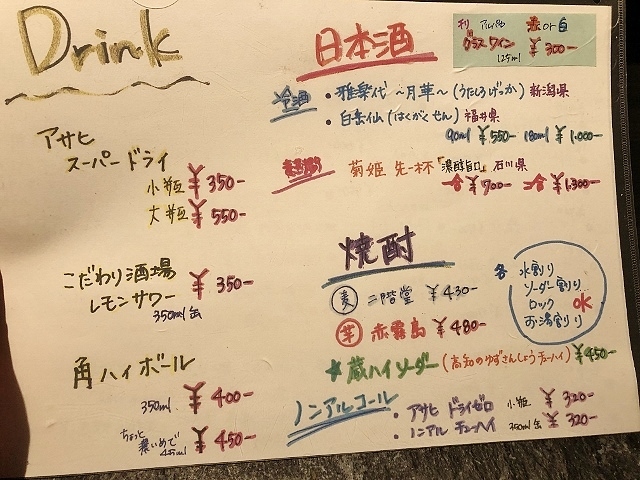 Drink
アサヒ
スーパードライ
小瓶 ¥350-
大瓶 ¥550-
こだわり酒場
レモンサワー ¥350-
350ml缶
角ハイボール
350ml ¥400-
ちょっと
濃いめで ¥450-
日本酒
アルパカ 赤or白
グラスワイン ¥300-
125ml
冷酒 ・雅楽代 〜月華〜 (うたしろげっか) 新潟県
・白岳仙 (はくがくせん) 福井県
90ml ¥550- 180ml ¥1,000-
菊姫 先一杯 「濃醇旨口」 石川県
一合 ¥700- 二合 ¥1,300-
焼酎
麦 二階堂 ¥430-
芋 赤霧島 ¥480-
★蔵ハイソーダー (高知のゆずさんしょうチューハイ) ¥450-
各 水割り
ソーダー割り
ロック OK
お湯割り
ノンアルコール
・アサヒ ドライゼロ 小瓶 ¥320-
・ノンアル チューハイ 350ml缶 ¥320-